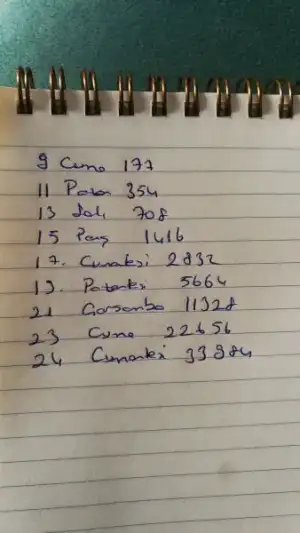 9 Cuma 177
11 Pazar 354
13 Salı 708
15 Perş 1416
17. Cumartesi 2832
19. Pazartesi 5664
21 Çarşamba 11328
23 Cuma 22656
24 Cumartesi 33984